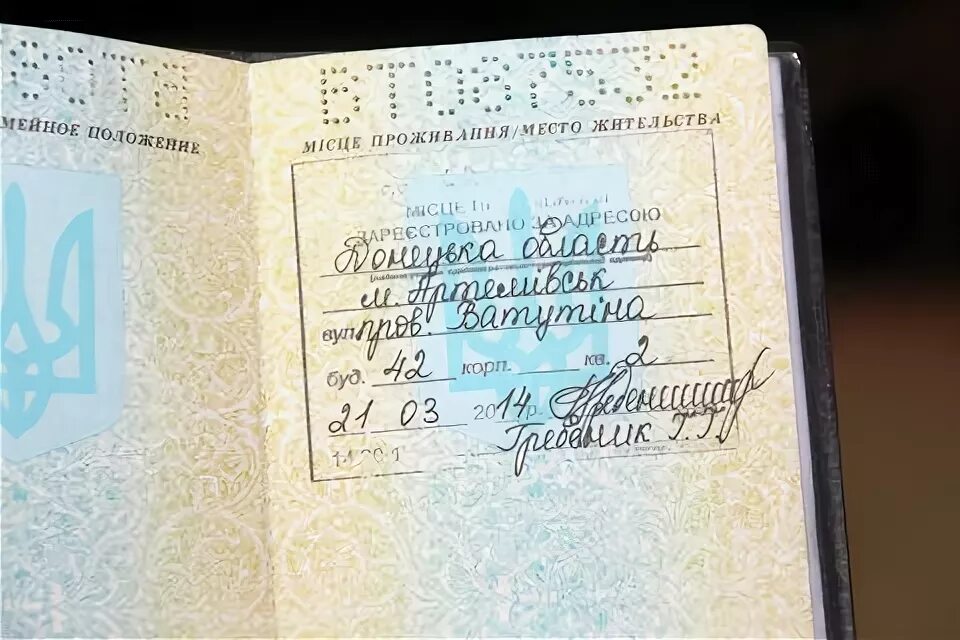 МЕЙНОЕ ПОЛОЖЕНИЕ
МІСЦЕ ПРОЖИВАННЯ/МЕСТО ЖИТЕЛЬСТВА
МІСЦЕ
ЗАРЕЄСТРОВАНО ЗА АДРЕСОЮ
Донецька область
м. Артемівськ
вул. пров. Ватутіна
буд. 42 корп. кв. 2
21 03 2014р.
Гребеник Г.Г.